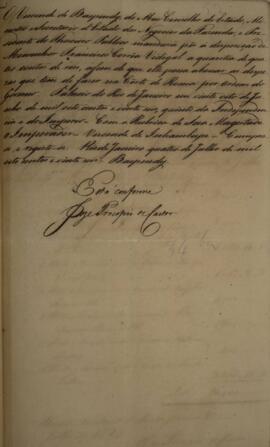 O Visconde de Baependy, do Meu Conselho de Estado, Mi-
nistro e Secretario d'Estado dos Negocios da Fazenda, e Pre-
sidente do Thesouro Publico mandará pôr á disposição de
Monsenhor Francisco Corrêa Vidigal a quantia de qua-
tro contos de reis, afim de que elle possa abonar as despe-
zas que tem de fazer na Corte de Roma por ordem do
Governo. Palacio do Rio de Janeiro em vinte sete de Ju-
nho de mil oito centos e vinte seis, quinto da Independen-
cia e do Imperio. Com a Rubrica de Sua Magestade
o Imperador. Visconde de Inhambupe. Cumpra-se
e registe-se. Rio de Janeiro quatro de Julho de mil
oito centos e vinte seis. Baependy
Está conforme
Joze Procopio de Castro